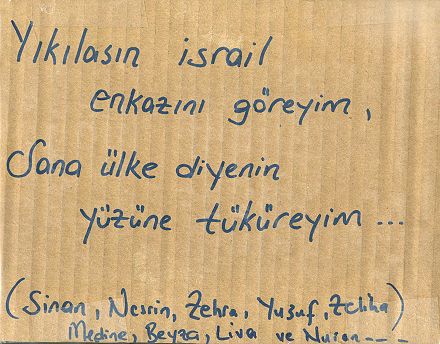 Yıkılasın israil
enkazını göreyim,
Sana ülke diyenin
yüzüne tüküreyim...
(Sinan, Nesrin, Zehra, Yusuf, Zeliha)
Medine, Beyza, Liva ve Nuran---